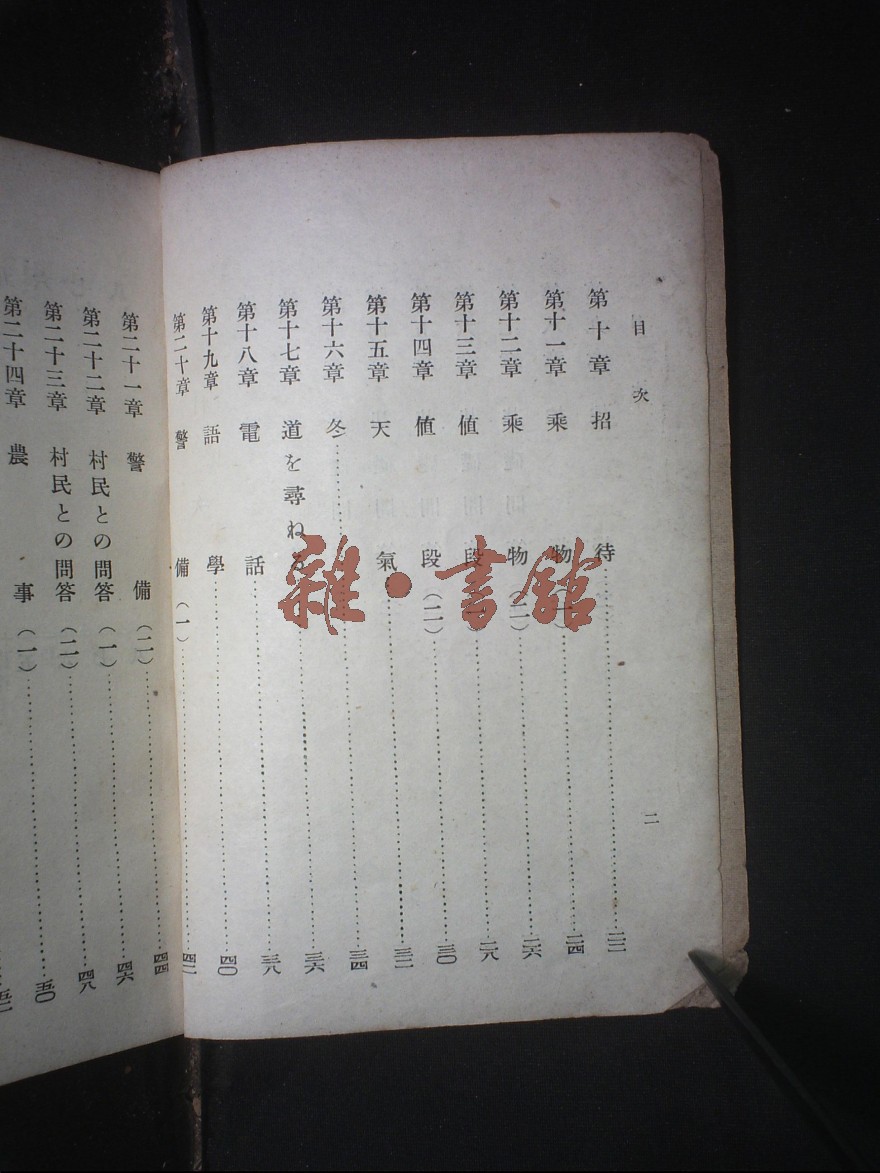 目次
二
第十章 招待……二二
第十一章 乘物(一)……二四
第十二章 乘物(二)……二六
第十三章 値段(一)……二八
第十四章 値段(二)……三〇
第十五章 天氣……三二
第十六章 冬……三四
第十七章 道を尋ねる……三六
第十八章 電話……三八
第十九章 語學……四〇
第二十章 警備(一)……四二
第二十一章 警備(二)……四四
第二十二章 村民との問答(一)……四六
第二十三章 村民との問答(二)……四八
第二十四章 農事(一)……五〇
五二
雜·書館